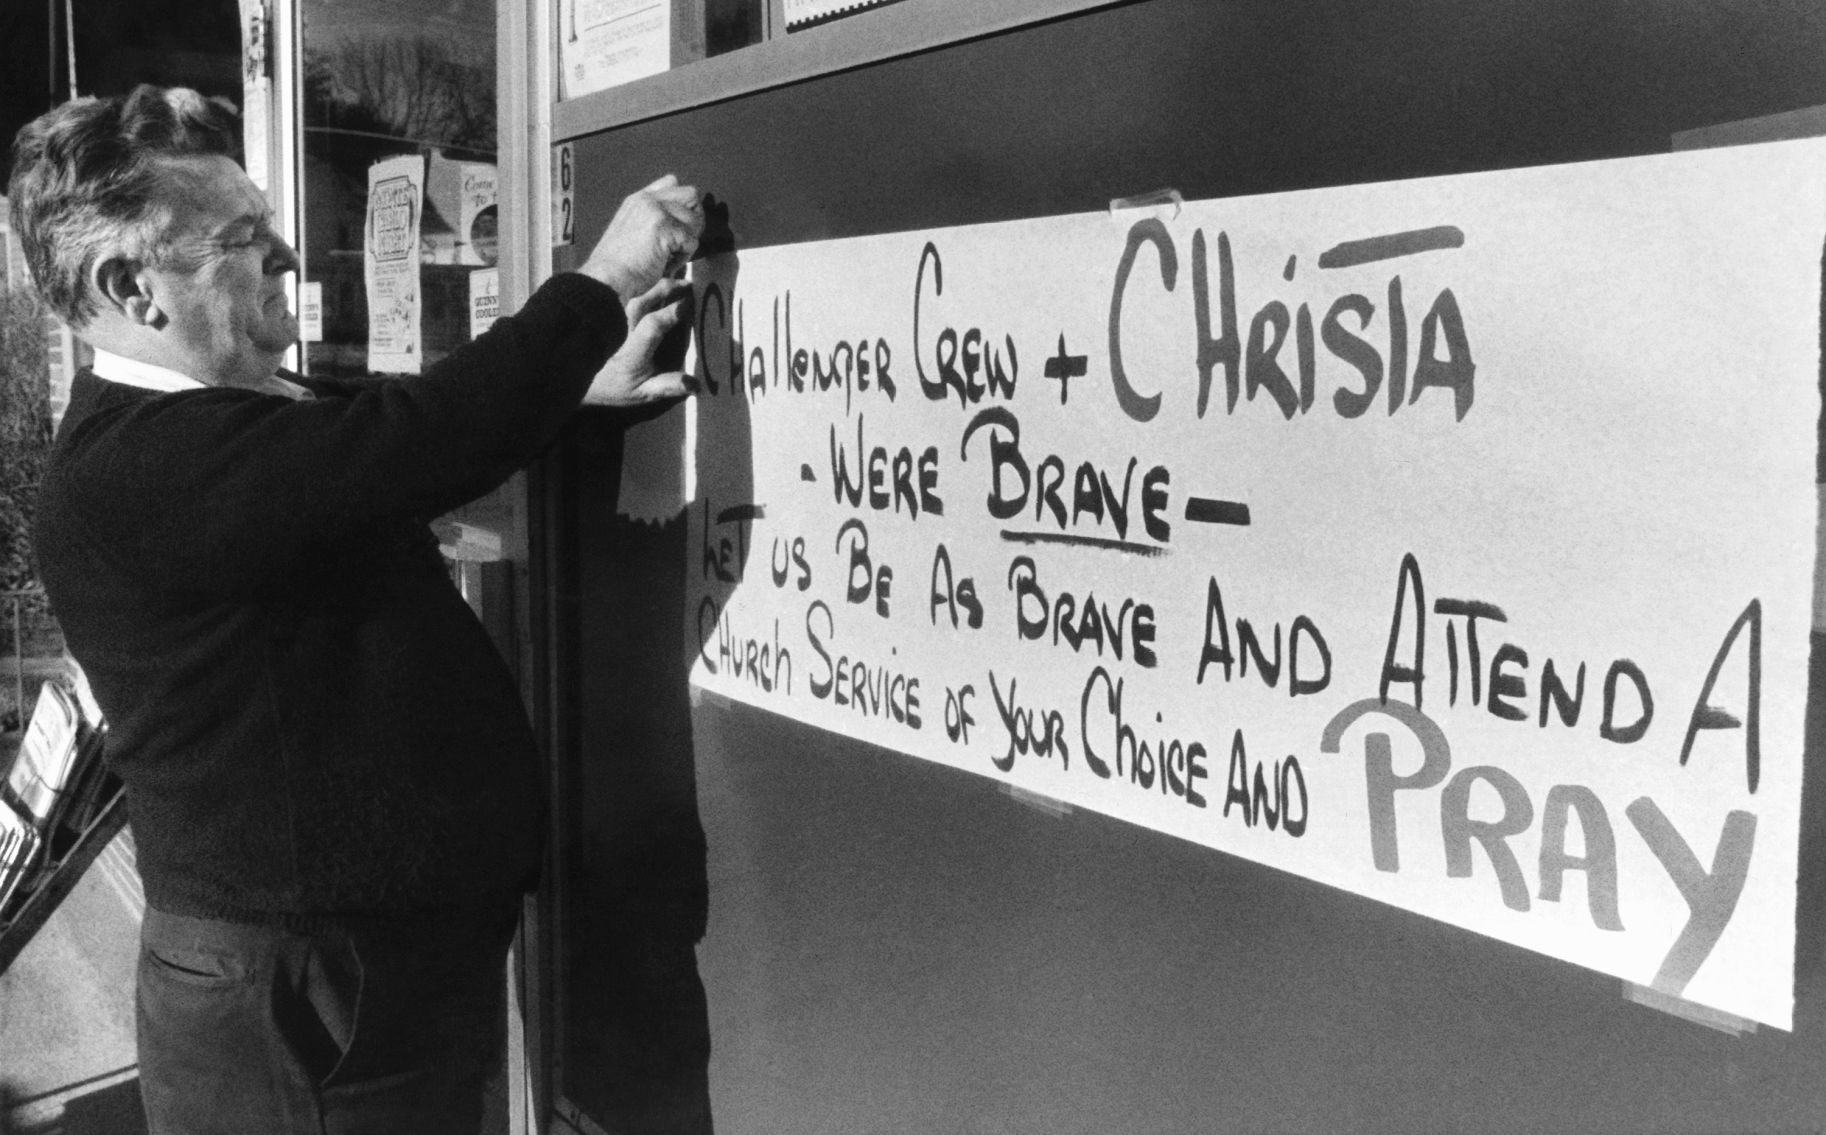 6
2
Come
to
CHallenger CREW + CHRiSTA
- WERE BRAVE -
LET US BE AS BRAVE AND ATTEND A
CHURCh SERVICE OF YOUR ChoiCE AND PRAY